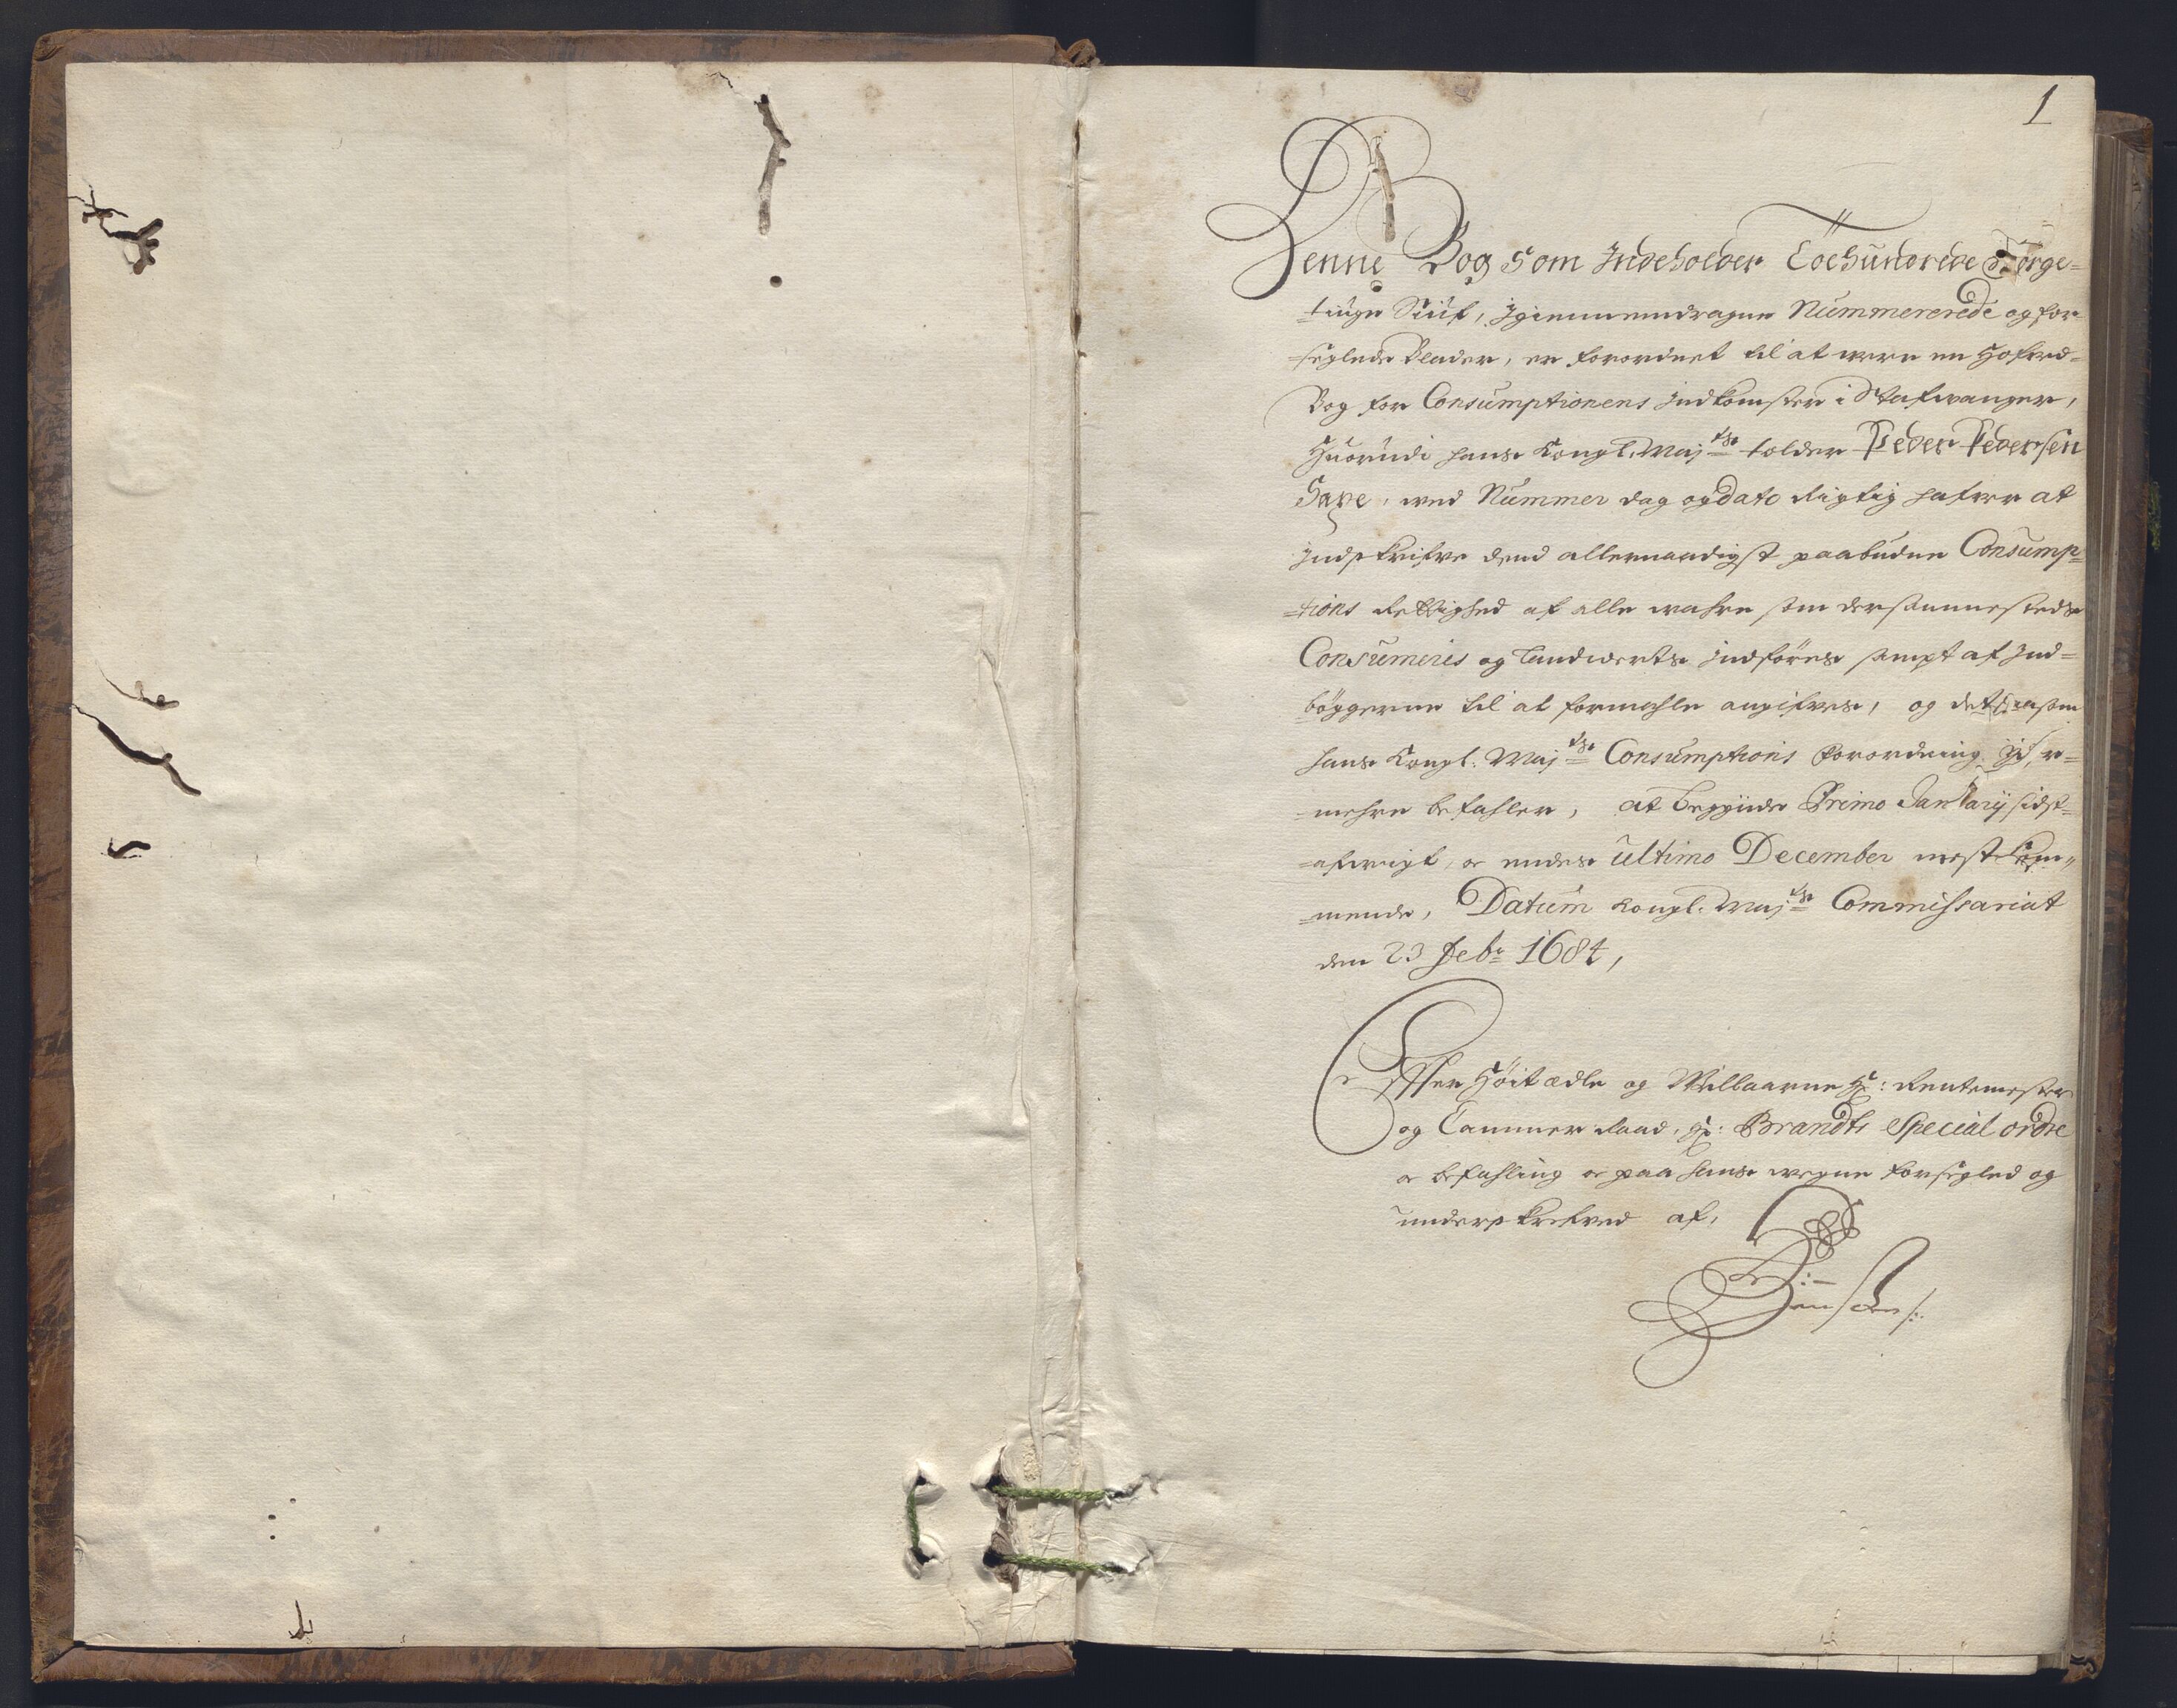 1
Denne Bog som Indeholder Toehundrede Förge-
tiuge Siuf, Igiennemdragne Nummererede og for-
seglede Blader, er forordnet til at were en Hofved-
Bog for Consumptionens Indkomster i Stafwanger,
Huorudi hans Kongl. Maj:ts tolder Peder Pedersen
, med Nummer dag og dato Rigtig hafver at
Indskrifve dend allernaadigst paabudne Consump-
-tions Rettighed af alle wahre som dersammesteds
Consumeris og Landwerts Indföres sampt af Ind-
böggerne til at formahle angifves, og det som
hans Kongl. Maj:ts Consumptions Forordning
-mehre befahler, at begynde Primo Januarij sidst-
-afvigt, oc endes ultimo December nest kom-
-mende, Datum Kongl. Maj:ts Commissariat
den 23 Feb: 1684,
Effter Höit ædle og Wellbaarne Hr: Rentemester
og Cammer Raad, Hr: Brandts Special ordre
oc befahling oc paa hans wegne forsegled og
underskrefved af,